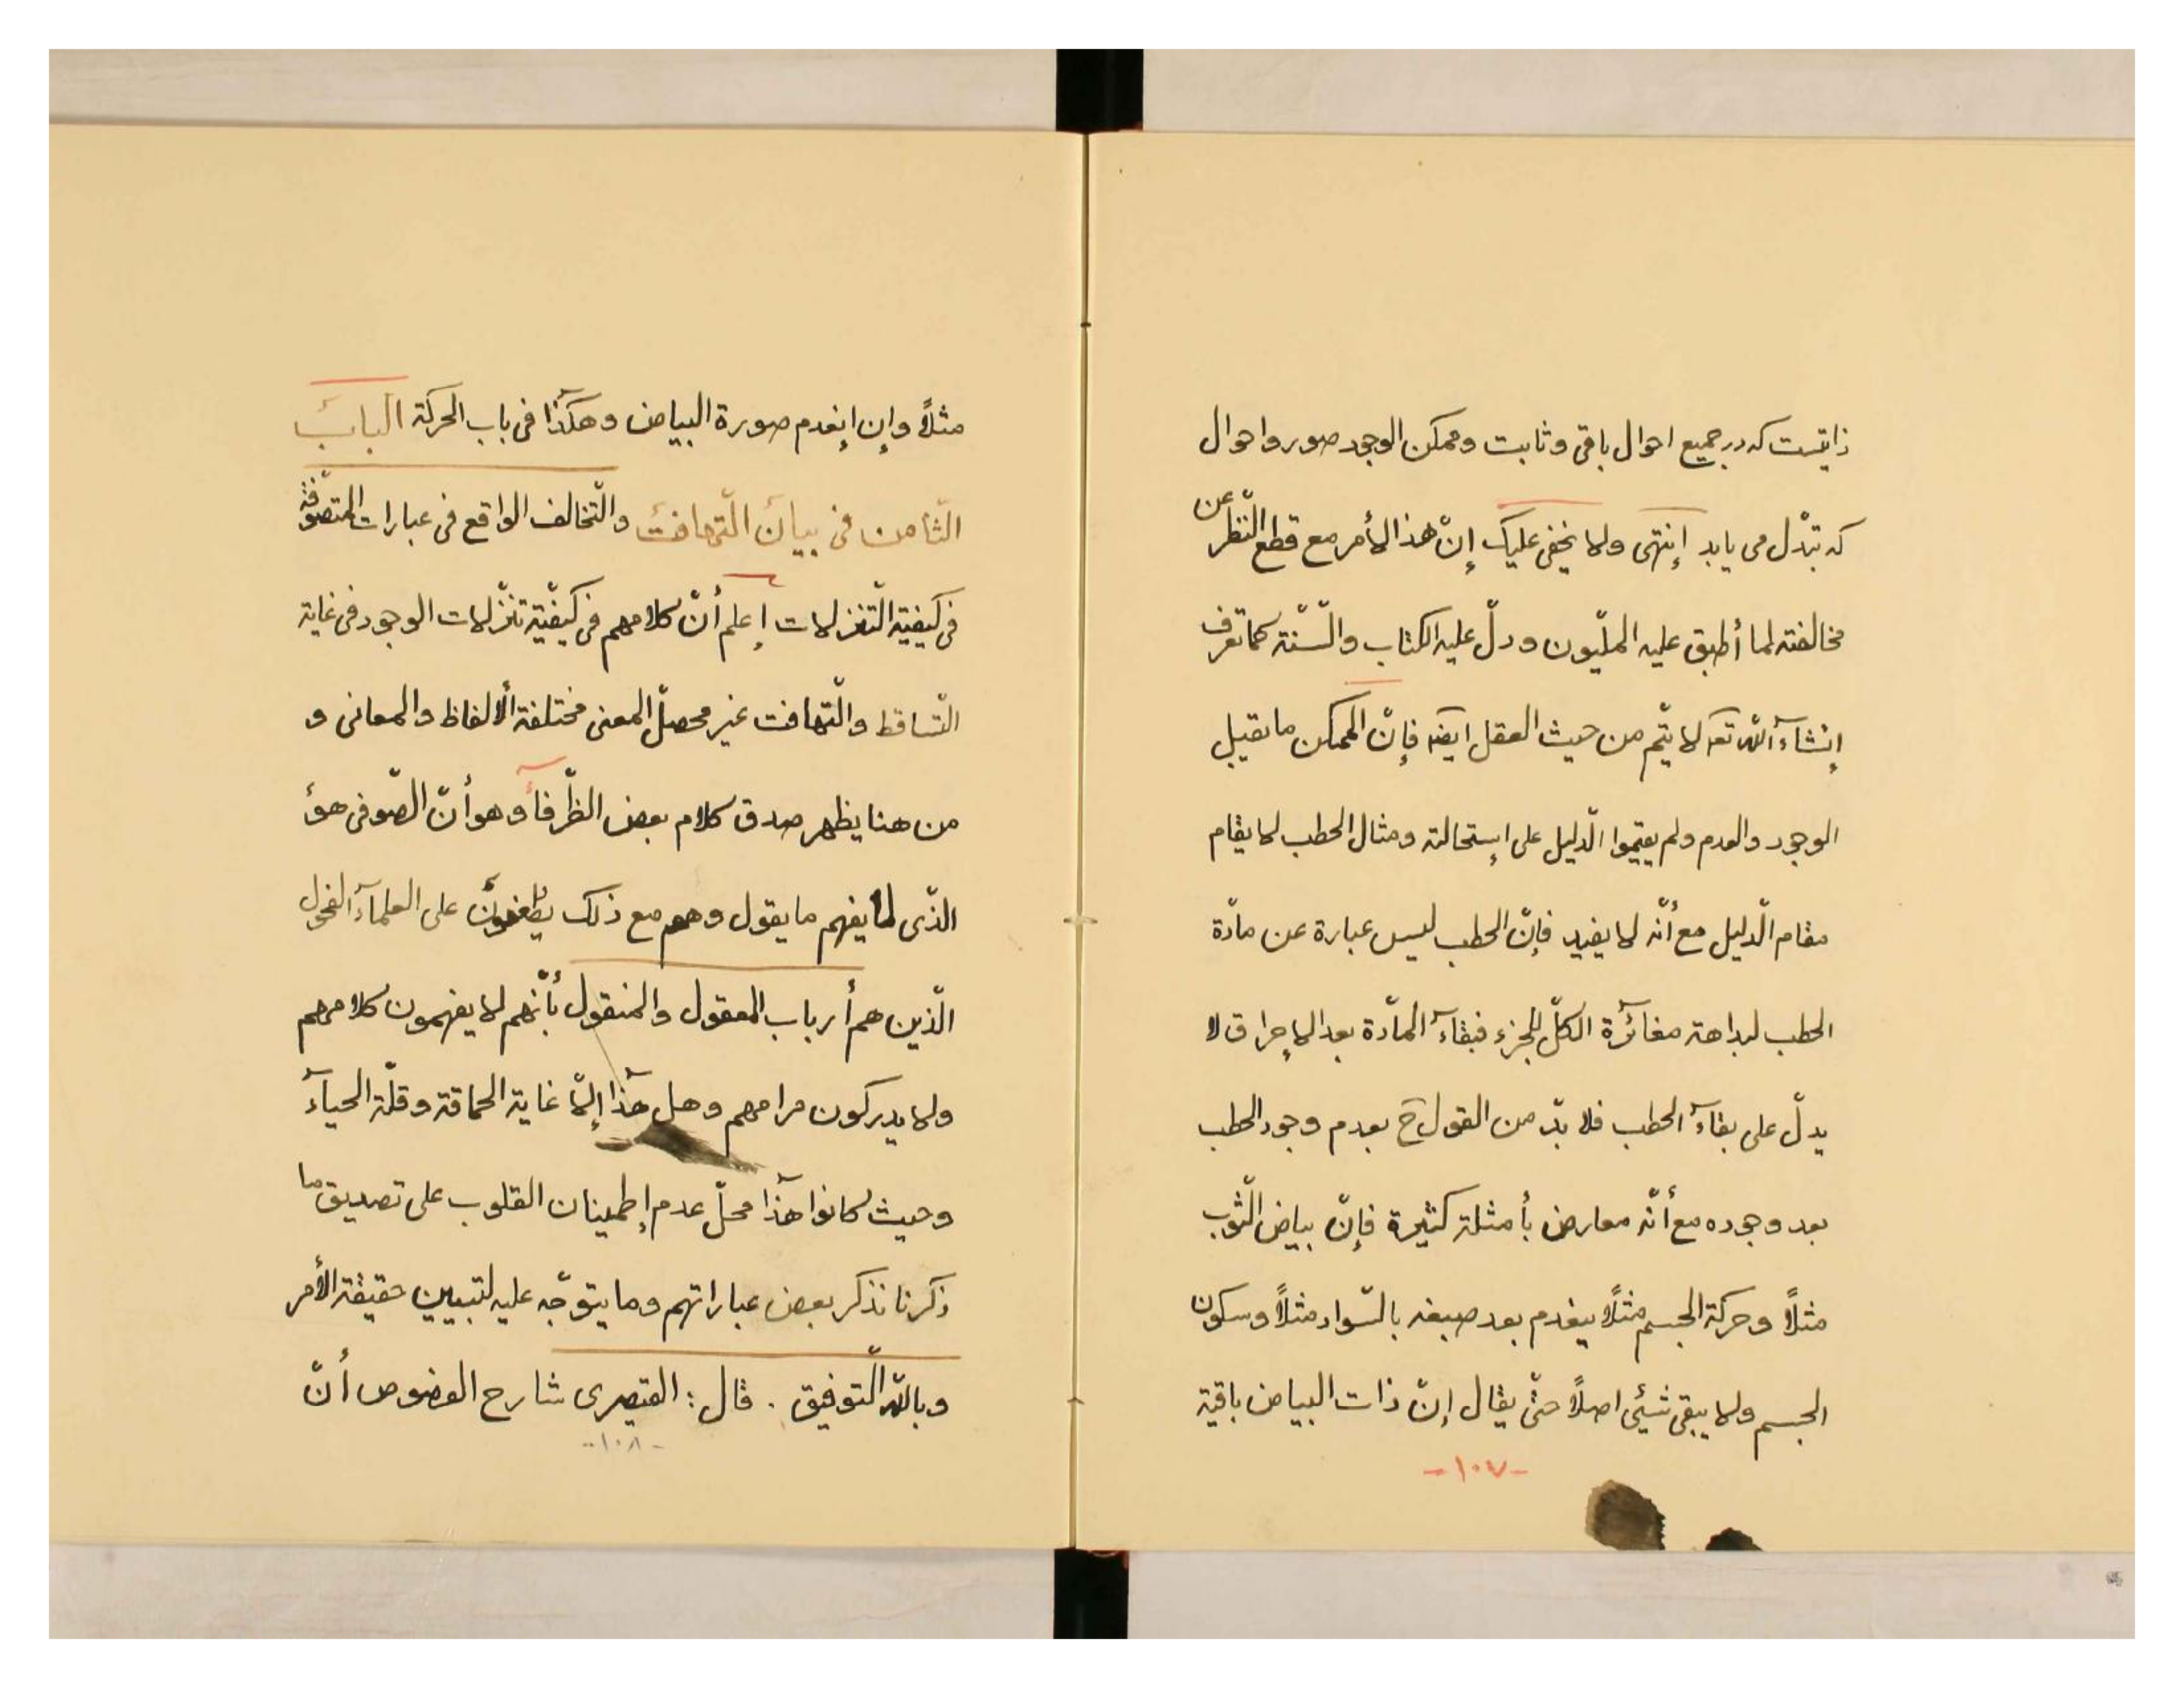 ذاتیست که در جمیع احوال باقی و ثابت و ممکن الوجود صور و احوال
که تبدّل می یابد إنتهی ولا یخفی علیک إنّ هذا الأمر مع قطع النّظر عن
مخالفته لما أطبق علیه الملّیون ودلّ علیه الکتاب والسّنّة کما تعرف
إنشاءآللّه تعه لا یتّم من حیث العقل ایضه فإنّ الممکن ما یقبل
الوجود والعدم ولم یقیموا الدّلیل علی إستحالته ومثال الحطب لا یقام
مقام الدّلیل مع أنّه لا یفید فإنّ الحطب لیس عبارة عن مادّة
الحطب لبداهة مغائرة الکلّ للجزء فبقاءآ المادّة بعد الإحراق لا
یدلّ علی بقاءآ الحطب فلا بدّ من القول ح بعدم وجود الحطب
بعد وجوده مع أنّه معارض بأمثلة کثیرة فإنّ بیاض الثّوب
مثلاً وحرکة الجسم مثلاً ینعدم بعد صبغه بالسّواد مثلاً وسکون
الجسم ولا یبقی شیئی اصلاً حتّی یقال إنّ ذات البیاض باقیة
-١٠٧-
مثلاً وإن إنعدم صورة البیاض وهکذا فی باب الحرکة الباب
الثّامن فی بیان التّهافت والتّخالف الواقع فی عبارات المتصوّفة
فی کیفیة التّنزلات إعلم أنّ کلامهم فی کیفیّة تنزّلات الوجود فی غایة
التّساقط والتّهافت غیر محصلّ المعنی مختلفة الألفاظ والمعانی و
من هنا یظهر صدق کلام بعض الظّرفاءآ وهو أنّ الصّوفی هو
الذّی لا یفهم ما یقول وهم مع ذلک یطعنون علی العلماءآ الفحول
الّذین هم أرباب المعقول والمنقول بأنّهم لا یفهمون کلامهم
ولا یدرکون مرامهم وهل هذا إلّا غایة الحماقة وقلّة الحیاءآ
وحیث کانوا هذا محلّ عدم إطمینان القلوب علی تصدیق ما
ذکرنا نذکر بعض عباراتهم وما یتوجّه علیه لتبیین حقیقة الأمر
وباللّه التّوفیق . قال: القیصری شارح الفصوص أنّ
-١٠٨-